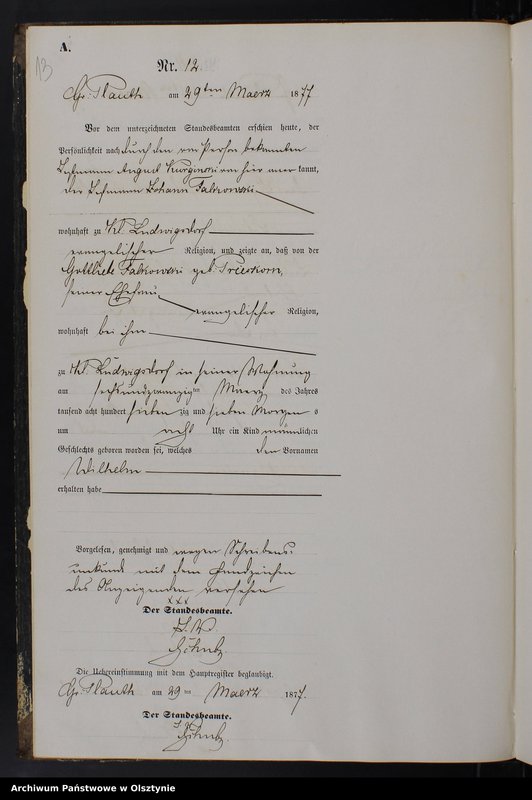 A.
13
Nr. 12.
Gr. Plauth am 29ten Maerz 1877
Vor dem unterzeichneten Standesbeamten erschien heute, der
Persönlichkeit nach durch den von Person bekannten
August von hier aner kannt,
der Johann Falkowski
wohnhaft zu Kl. Ludwigsdorf
evangelischer Religion, und zeigte an, daß von der
Gottliebe Falkowski geb.
seiner Ehefrau
evangelischer Religion,
wohnhaft bei ihm
zu Kl. Ludwigsdorf in seiner Wohnung
am sechsundzwanzig ten Maerz des Jahres
tausend acht hundert sieben zig und sieben Morgens
um acht Uhr ein Kind männlichen
Geschlechts geboren worden sei, welches den Vornamen
Wilhelm
erhalten habe
Vorgelesen, genehmigt und wegen Schreibens
unkunde mit dem Handzeichen
des Anzeigenden versehen
xxx
Der Standesbeamte.
Die Uebereinstimmung mit dem Hauptregister beglaubigt.
Gr. Plauth am 29 ten Maerz 1877.
Der Standesbeamte.
Archiwum Państwowe w Olsztynie